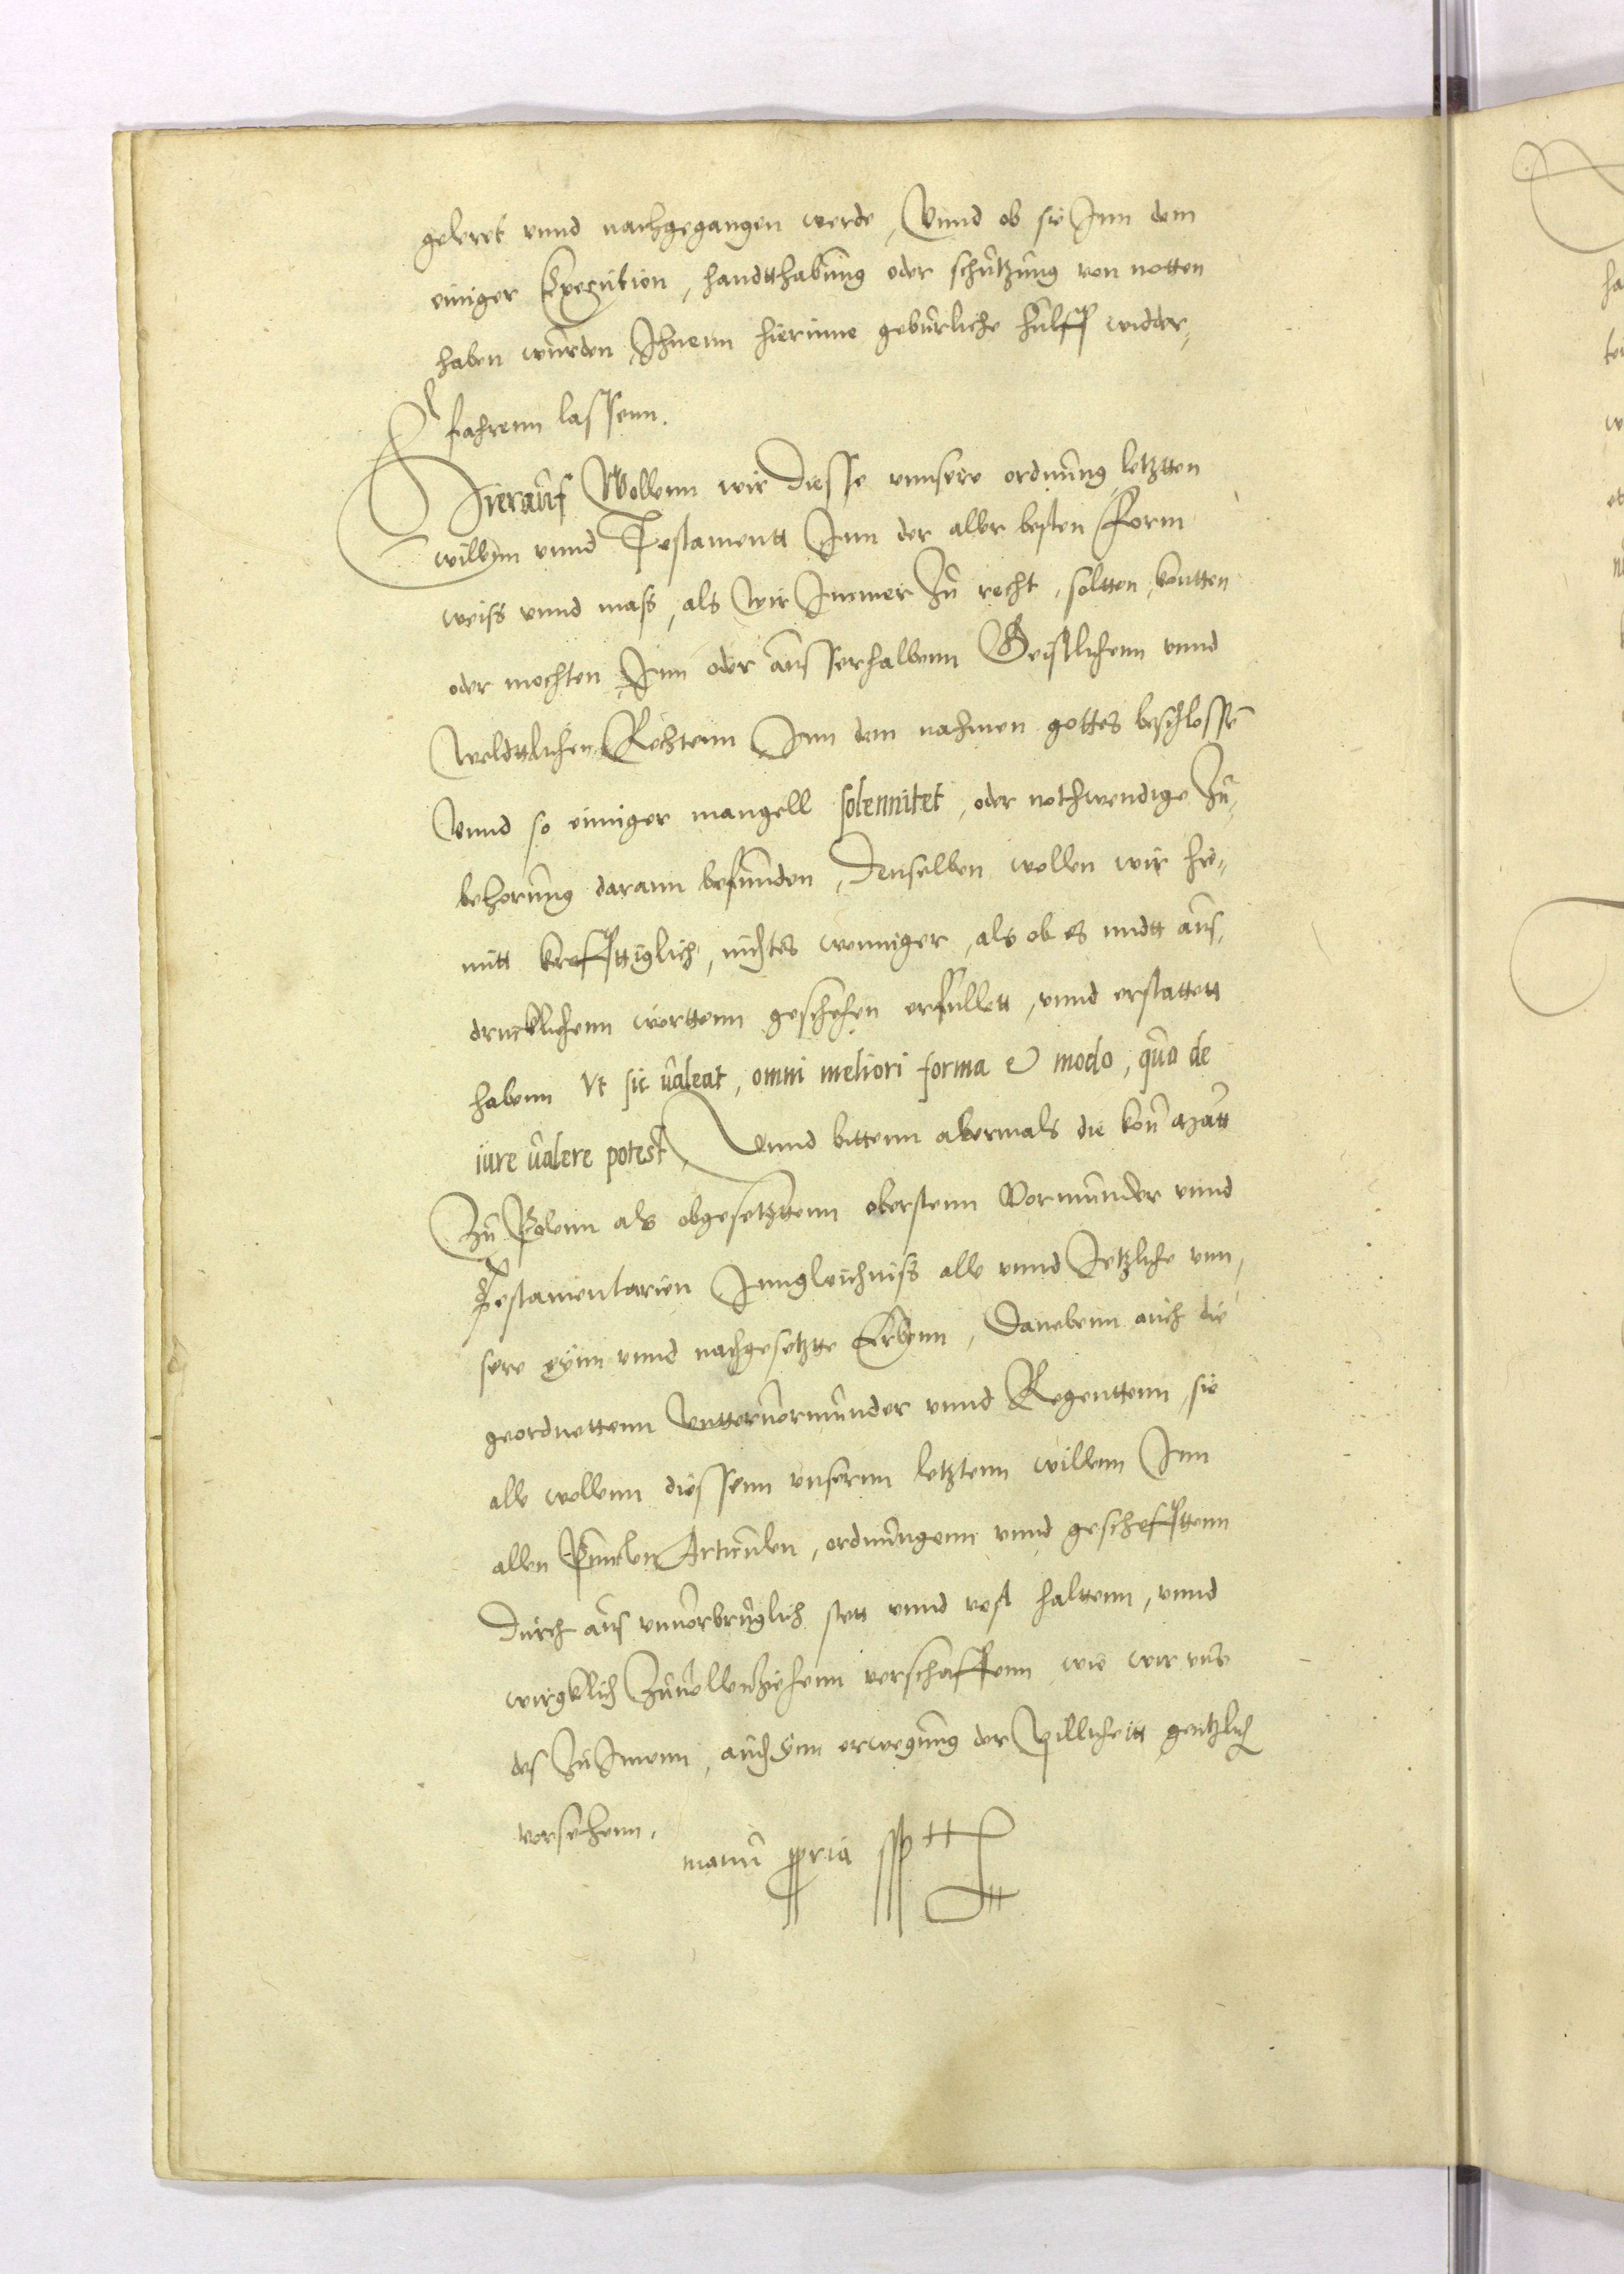 gelebet vnnd nachgegangen werde, Vnnd ob sie Inn dem
einiger Execution, handtthabung oder schutzung von notten
haben wurden Ihnenn hierinne geburliche hulff widder,
fahrenn lassenn.
Hierauf Wollenn wir diesse vnnsere ordnung letztten
willenn vnnd Testamentt Inn der aller besten Form
weiss vnnd mass, als wir Immer zu recht, soltten, kontten
oder mochten Inn oder ausserhalbenn Geistlichenn vnnd
Weldttlichen Rechtenn Inn dem nahmen gottes beschlossen
Vnnd so einniger mangell solennitet, oder nothwendige zu,
behorung darann befunden, Denselben wollen wir hie,
mitt krefftiglich, nichtes wenniger, als ob es midtt aus,
drucklichenn worttenn geschehen erfullett, vnnd erstattett
habenn Vt sic valeat, omni meliori forma et modo, quo de
iure valere potest, Vnnd bittenn abermals die kon Matt
zu Polenn als obgesetzttenn oberstenn Vormunder vnnd
Testamentarien Inngleichniss alle vnnd Jetzliche vnn,
sere eyn vnnd nachgesetzte Erbenn, Danebenn auch die
geordnettenn Vnttervormunder vnnd Regenttenn, sie
alle wollenn diessenn vnsernn letztenn willenn Inn
allen Puncten Articulen, ordnungenn vnnd gescheffttenn
Durch aus vnuorbruglich stett vnnd vest halttenn, vnnd
wirgklich zuuollenziehenn verschaffenn wie wir vns
des zu Innenn, auch Inn erwegung der pillicheitt gentzlich
vorsehenn.
manu ppria sspt